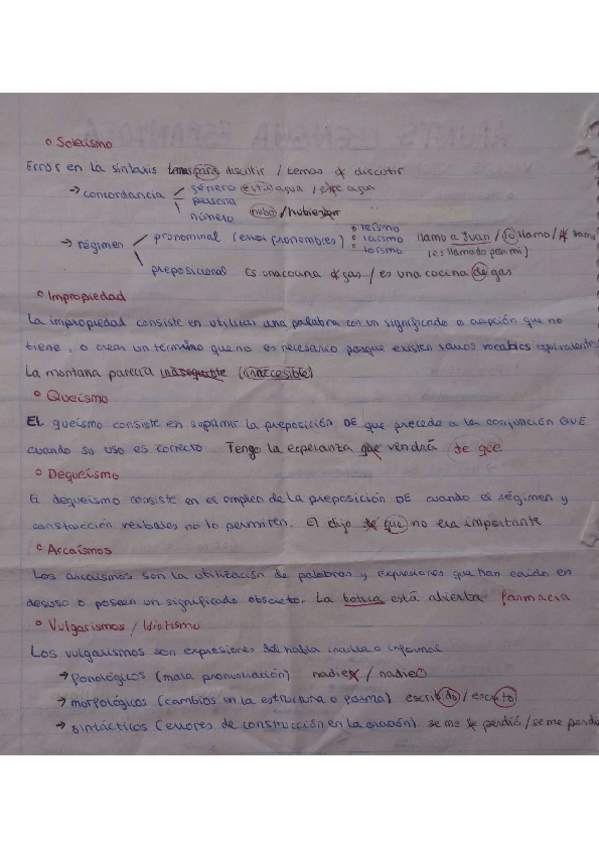 Solecismo
Error en la sintaxis temas para discutir / temas a discutir
→ concordancia género (esta) agua / este agua
persona
número (hubo) / hubieron
→ régimen pronominal (error pronombres) leísmo laísmo loísmo llamo a Juan / (lo) llamo / le llamo
(es llamado por mi)
preposicional Es una cocina a gas / es una cocina de gas
Impropiedad
La impropiedad consiste en utilizar una palabra con un significado o acepción que no
tiene, o crear un termino que no es necesario porque existen varios vocablos equivalentes
La montaña parecía inasequible (inaccesible)
Queísmo
EL queísmo consiste en suprimir la preposición DE que precede a la conjunción QUE
cuando su uso es correcto Tengo la esperanza que vendrá de que
Dequeísmo
El dequeísmo consiste en el empleo de la preposición DE cuando el régimen y
construcción verbales no lo permiten. El dijo de que no era importante
Arcaísmos
Los arcaísmos son la utilización de palabras y expresiones que han caído en
desuso o poseen un significado obsoleto. La botica está abierta farmacia
Vulgarismos / Idiotismo
Los vulgarismos son expresiones del habla inculta o informal
→ fonológicos (mala pronunciación) nadies / nadie
→ morfológicos (cambios en la estructura o forma) escribido / escrito
→ sintácticos (errores de construcción en la oración) se me perdió / se me